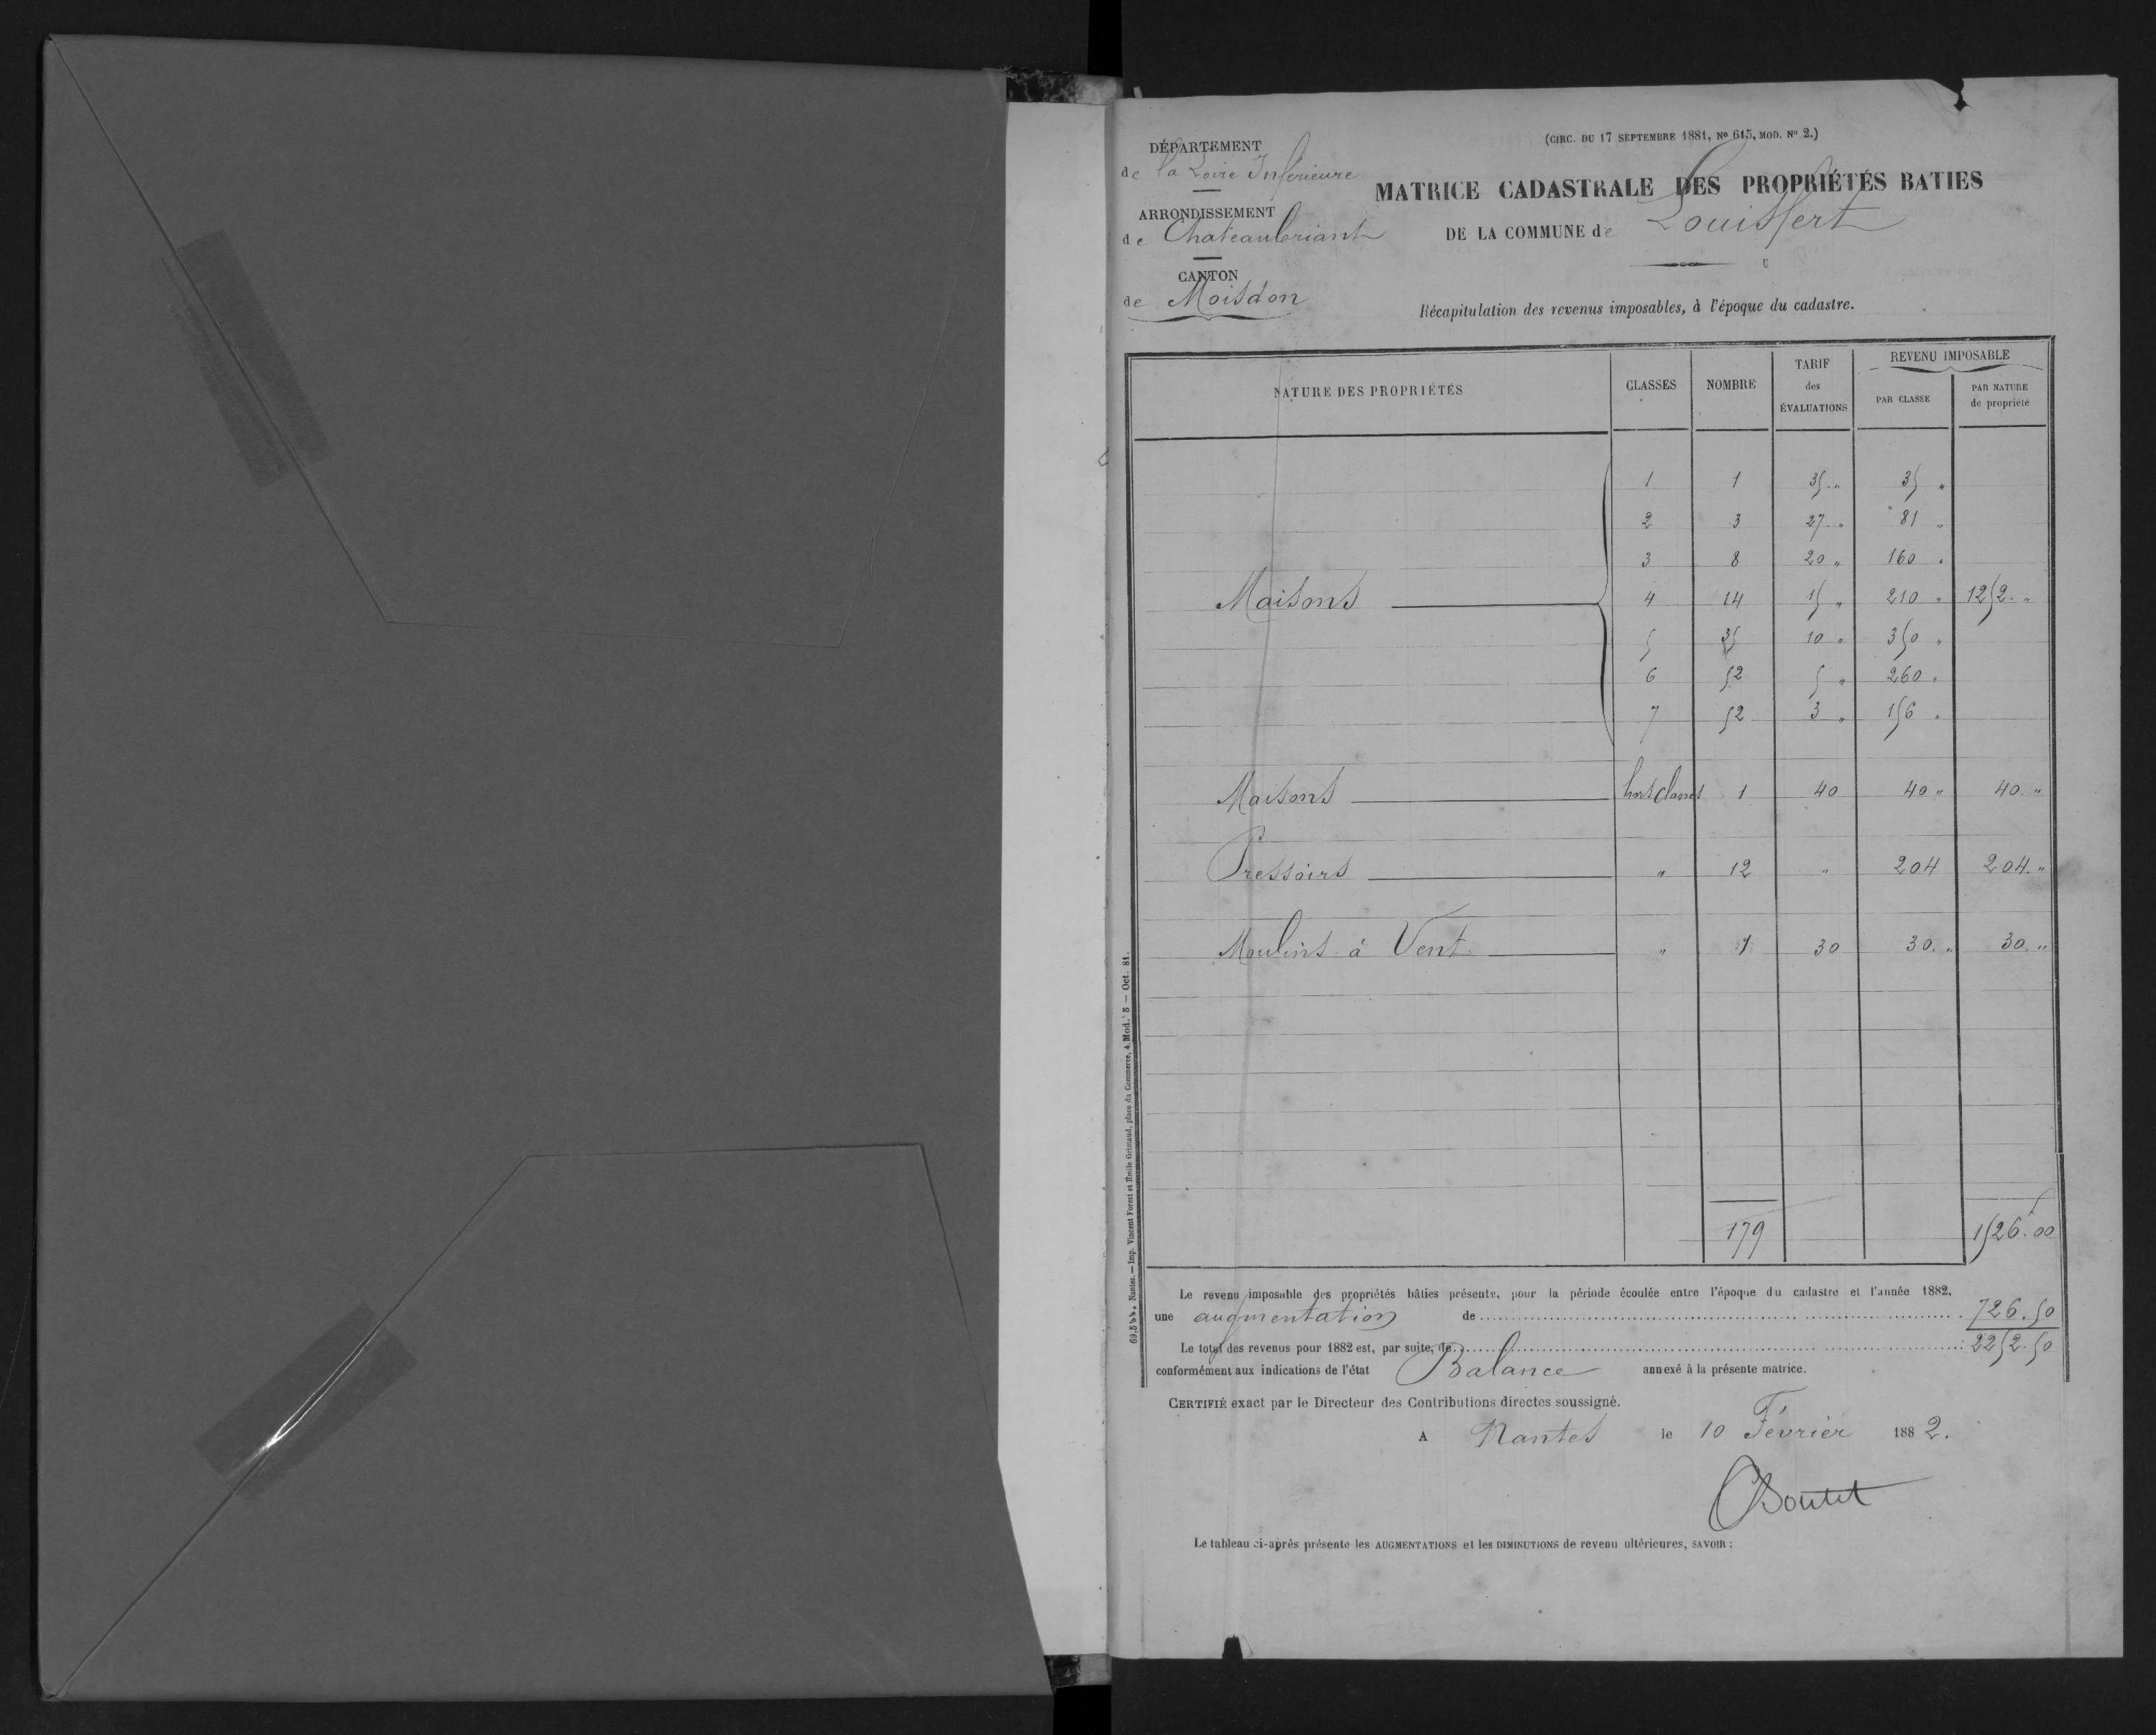 (CIRC. DU 17 SEPTEMBRE 1881, No 615, MOD. No 2.)
DÉPARTEMENT
de la Loire Inférieure
ARRONDISSEMENT
de Chateaubriant
CANTON
de Moisdon
MATRICE CADASTRALE DES PROPRIÉTÉS BATIES
DE LA COMMUNE de Louisfert
Récapitulation des revenus imposables, à l'époque du cadastre.
NATURE DES PROPRIÉTÉS CLASSES NOMBRE TARIF des ÉVALUATIONS REVENU IMPOSABLE PAR CLASSE PAR NATURE de propriété
1 1 35 " 35 "
2 3 27 " 81 "
3 8 20 " 160 "
Maisons 4 14 15 " 210 " 1252 "
5 35 10 " 350 "
6 52 5 " 260 "
7 52 3 " 156 "
Maisons hors classes 1 40 40 " 40 "
Pressoirs " 12 " 204 204 "
Moulins à Vent " 1 30 30 " 30 "
179 1526.00
Le revenu imposable des propriétés bâties présente, pour la période écoulée entre l'époque du cadastre et l'année 1882,
une augmentation de 726.50
Le total des revenus pour 1882 est, par suite, de 2252.50
conformément aux indications de l'état Balance annexé à la présente matrice.
CERTIFIÉ exact par le Directeur des Contributions directes soussigné.
A Nantes le 10 Février 1882.
Le tableau ci-après présente les AUGMENTATIONS et les DIMINUTIONS de revenu ultérieures, SAVOIR :
Nantes. — Imp. Vincent Forest et Émile Grimaud, place du Commerce, 4. Mod. 5 — Oct. 81.